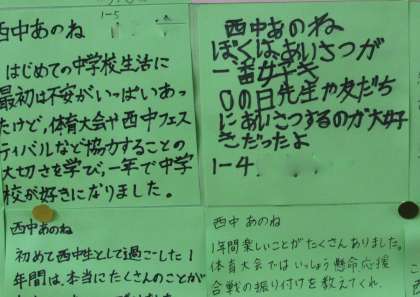 1-5
西中あのね
はじめての中学校生活に
最初は不安がいっぱいあっ
たけど、体育大会や西中フェス
ティバルなど協力することの
大切さを学び、一年で中学
校が好きになりました。
西中あのね
ぼくは、あいさつが
一番好き
0の日先生や友だち
にあいさつするのが大好
きだったよ
1-4
西中あのね
初めて西中生として過ごした1
年間は、本当にたくさんのことが
西中あのね
1年間楽しいことがたくさんありました。
体育大会ではいっしょう懸命応援
合戦の振り付けを教えてくれ